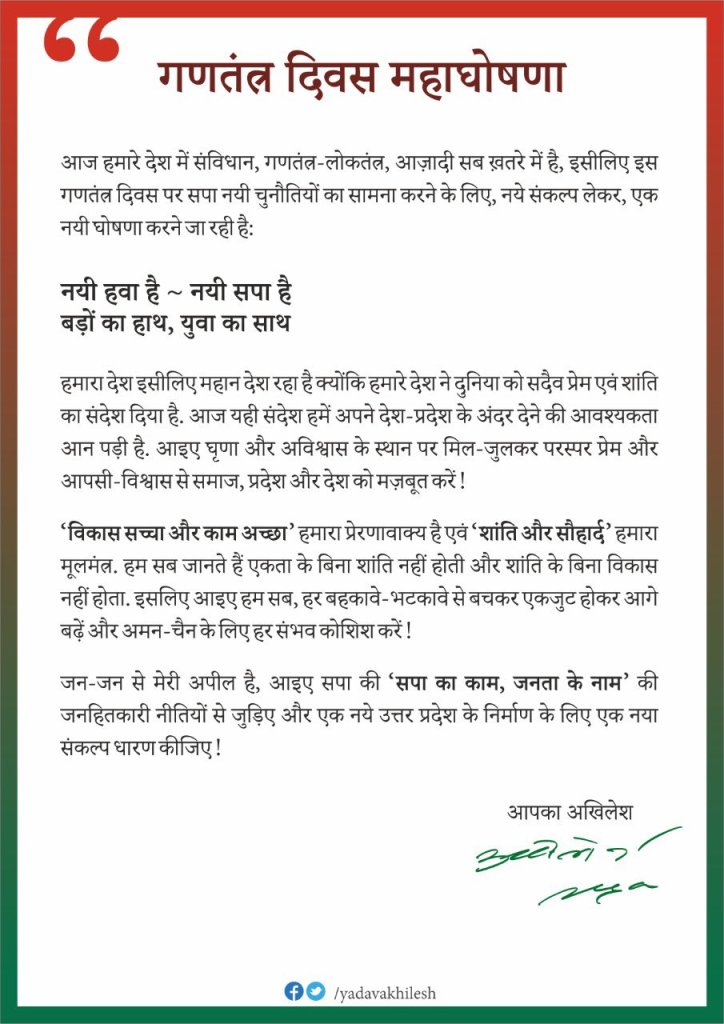 गणतंत्र दिवस महाघोषणा
आज हमारे देश में संविधान, गणतंत्र-लोकतंत्र, आज़ादी सब ख़तरे में है, इसीलिए इस
गणतंत्र दिवस पर सपा नयी चुनौतियों का सामना करने के लिए, नये संकल्प लेकर, एक
नयी घोषणा करने जा रही है:
नयी हवा है ~ नयी सपा है
बड़ों का हाथ, युवा का साथ
हमारा देश इसीलिए महान देश रहा है क्योंकि हमारे देश ने दुनिया को सदैव प्रेम एवं शांति
का संदेश दिया है. आज यही संदेश हमें अपने देश-प्रदेश के अंदर देने की आवश्यकता
आन पड़ी है. आइए घृणा और अविश्वास के स्थान पर मिल-जुलकर परस्पर प्रेम और
आपसी-विश्वास से समाज, प्रदेश और देश को मज़बूत करें!
‘विकास सच्चा और काम अच्छा’ हमारा प्रेरणावाक्य है एवं ‘शांति और सौहार्द’ हमारा
मूलमंत्र. हम सब जानते हैं एकता के बिना शांति नहीं होती और शांति के बिना विकास
नहीं होता. इसलिए आइए हम सब, हर बहकावे-भटकावे से बचकर एकजुट होकर आगे
बढ़ें और अमन-चैन के लिए हर संभव कोशिश करें!
जन-जन से मेरी अपील है, आइए सपा की ‘सपा का काम, जनता के नाम’ की
जनहितकारी नीतियों से जुड़िए और एक नये उत्तर प्रदेश के निर्माण के लिए एक नया
संकल्प धारण कीजिए!
आपका अखिलेश
/yadavakhilesh